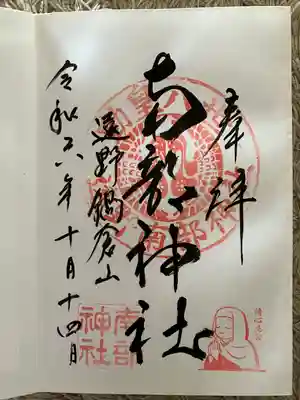 奉拝
南部神社
遠野 鍋倉山
令和六年十月十四日
南部
神社
清心尼公